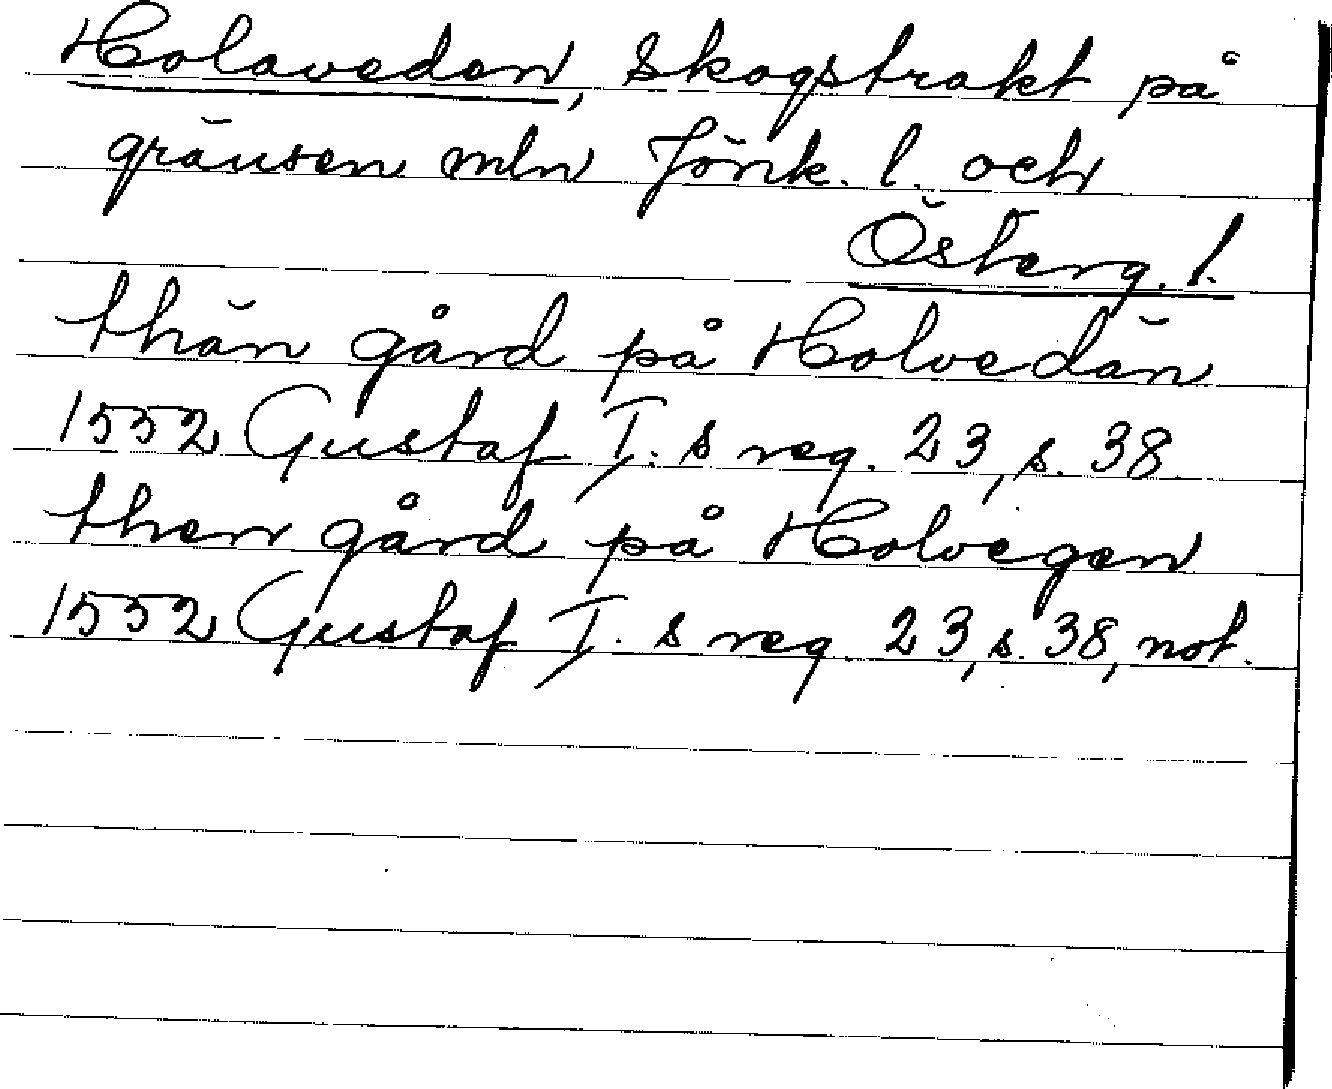 Holaveden, skogstrakt på
gränsen mln Jönk. l. och
Österg. l.
thän gård på Holvedän
1552 Gustaf I:s reg. 23, s. 38
then gård på Holvegen
1552 Gustaf I:s reg. 23, s. 38, not.